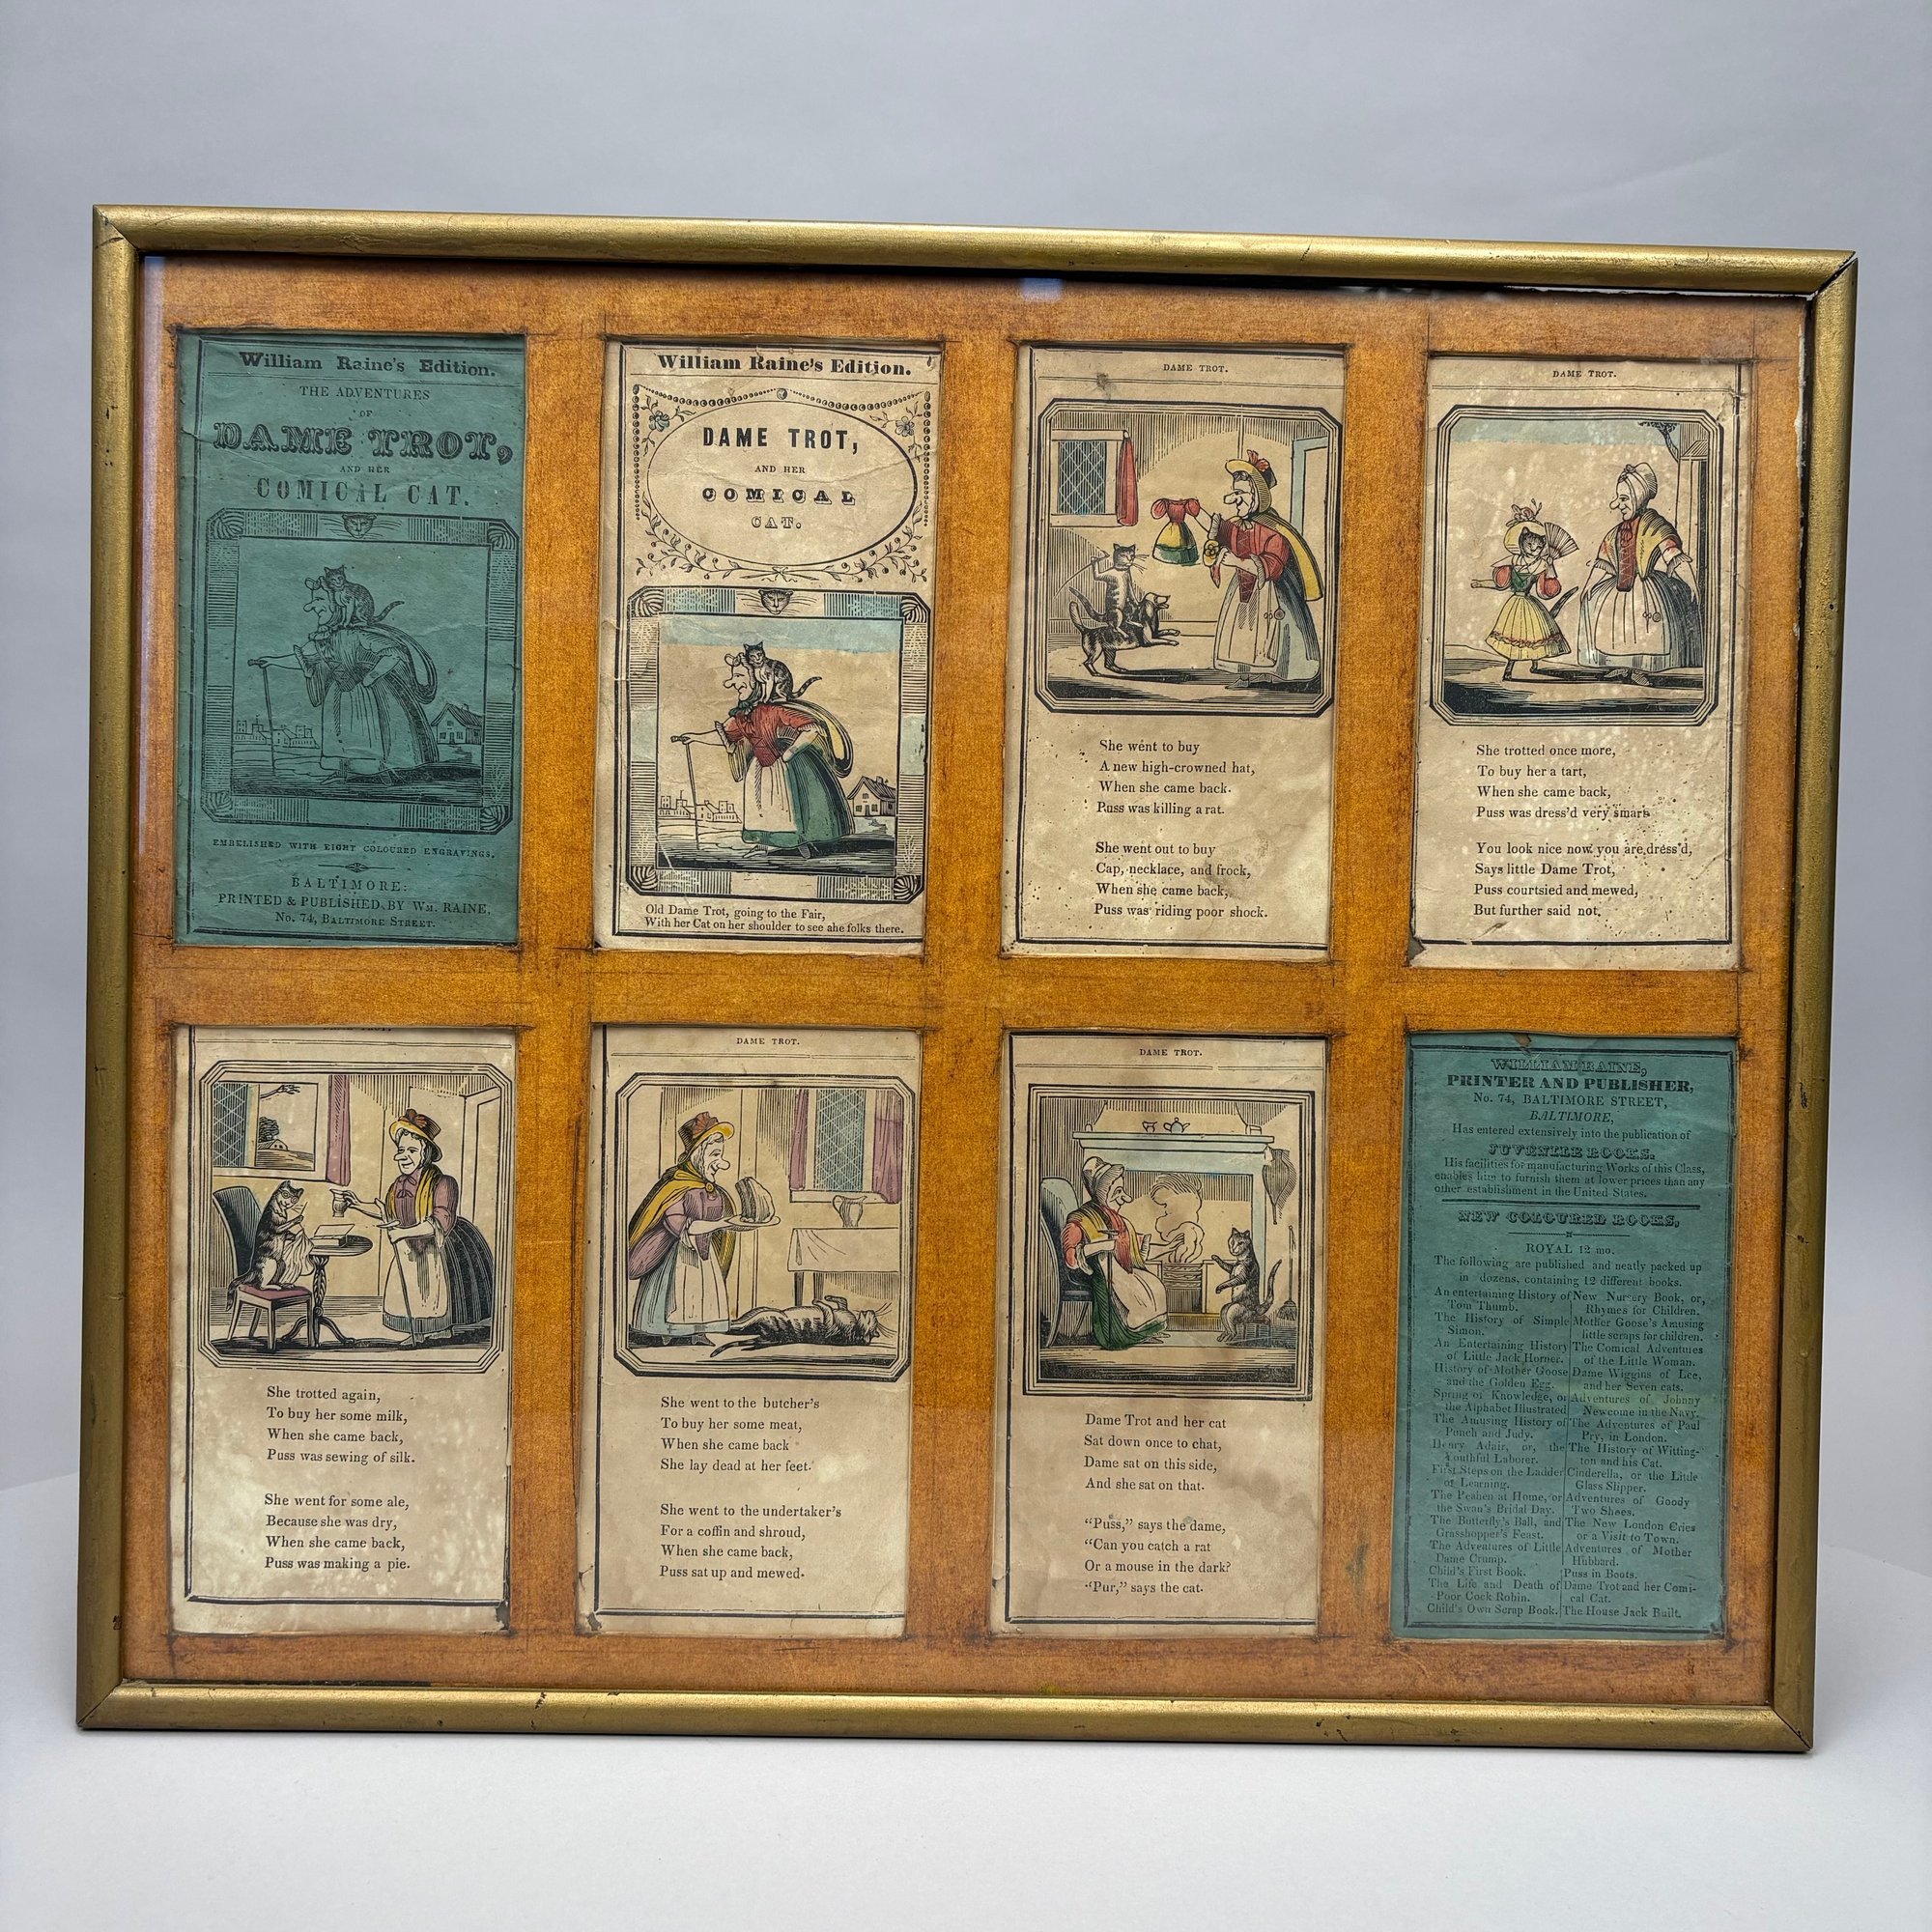 William Raine's Edition.
THE ADVENTURES
OF
DAME TROT,
AND HER
COMICAL CAT.
EMBELISHED WITH EIGHT COLOURED ENGRAVINGS.
BALTIMORE:
PRINTED & PUBLISHED BY WM. RAINE,
No. 74, BALTIMORE STREET.
William Raine's Edition.
DAME TROT,
AND HER
COMICAL
CAT.
Old Dame Trot, going to the Fair,
With her Cat on her shoulder to see ahe folks there.
DAME TROT.
She went to buy
A new high-crowned hat,
When she came back.
Puss was killing a rat.
She went out to buy
Cap, necklace, and frock,
When she came back,
Puss was riding poor shock.
DAME TROT.
She trotted once more,
To buy her a tart,
When she came back,
Puss was dress'd very smart
You look nice now you are dress'd,
Says little Dame Trot,
Puss courtsied and mewed,
But further said not.
DAME TROT.
She trotted again,
To buy her some milk,
When she came back,
Puss was sewing of silk.
She went for some ale,
Because she was dry,
When she came back,
Puss was making a pie.
DAME TROT.
She went to the butcher's
To buy her some meat,
When she came back
She lay dead at her feet.
She went to the undertaker's
For a coffin and shroud,
When she came back,
Puss sat up and mewed.
DAME TROT.
Dame Trot and her cat
Sat down once to chat,
Dame sat on this side,
And she sat on that.
"Puss," says the dame,
"Can you catch a rat
Or a mouse in the dark?
"Pur," says the cat.
WILLIAM RAINE,
PRINTER AND PUBLISHER,
No. 74, BALTIMORE STREET,
BALTIMORE,
Has entered extensively into the publication of
JUVENILE BOOKS.
His facilities for manufacturing Works of this Class,
enables him to furnish them at lower prices than any
other establishment in the United States.
NEW COLOURED BOOKS,
ROYAL 12 mo.
The following are published and neatly packed up
in dozens, containing 12 different books.
An entertaining History of
Tom Thumb.
The History of Simple
Simon.
An Entertaining History
of Little Jack Horner.
History of Mother Goose
and the Golden Egg.
Spring of Knowledge, or
the Alphabet Illustrated
The Amusing History of
Punch and Judy.
Henry Adair, or, the
Youthful Laborer.
First Steps on the Ladder
of Learning.
The Peahen at Home, or
the Swan's Bridal Day.
The Butterfly's Ball, and
Grasshopper's Feast.
The Adventures of Little
Dame Crump.
Child's First Book.
The Life and Death of
Poor Cock Robin.
Child's Own Scrap Book.
New Nursery Book, or,
Rhymes for Children.
Mother Goose's Amusing
little scraps for children.
The Comical Adventures
of the Little Woman.
Dame Wiggins of Lee,
and her Seven cats.
Adventures of Johnny
Newcome in the Navy.
The Adventures of Paul
Pry, in London.
The History of Witting-
ton and his Cat.
Cinderella, or the Little
Glass Slipper.
Adventures of Goody
Two Shoes.
The New London Cries
or a Visit to Town.
Adventures of Mother
Hubbard.
Puss in Boots.
Dame Trot and her Comi-
cal Cat.
The House Jack Built.